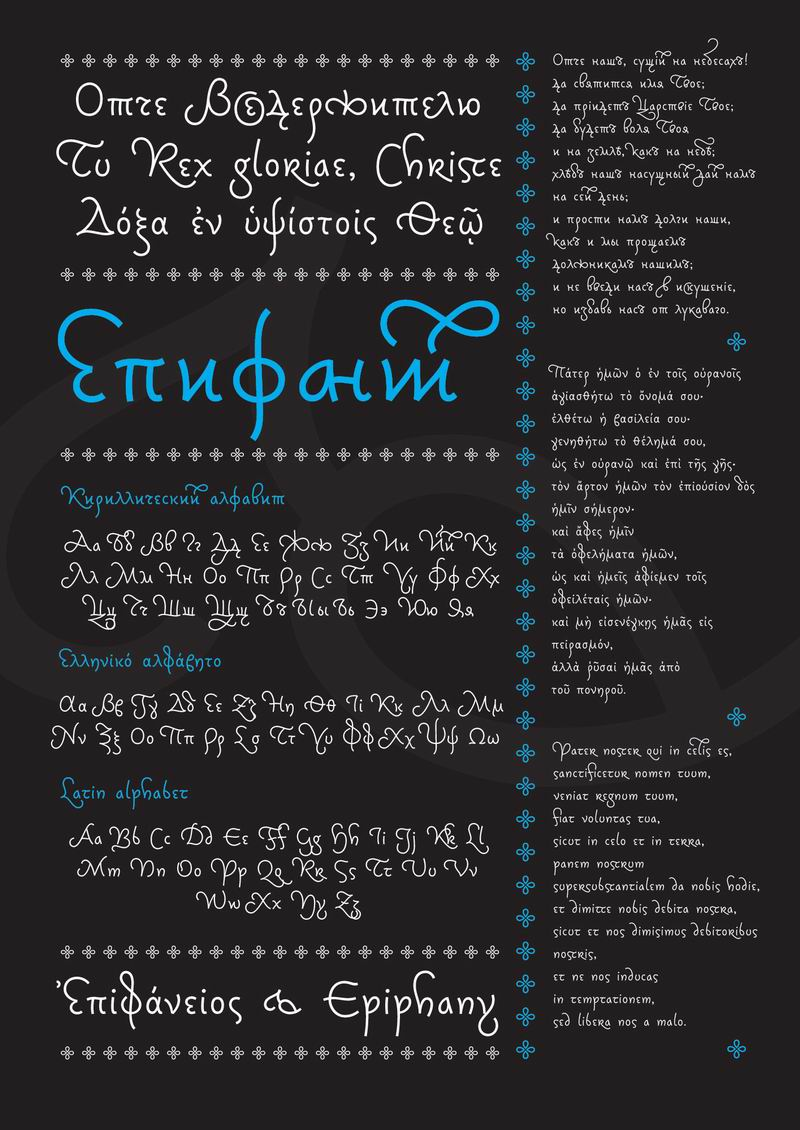 Отче Вседержителю
Tu Rex gloriae, Christe
Δόξα ἐν ὑψίστοις Θεῷ
Епифаній
Кириллический алфавит
Аа Бб Вв Гг Дд Ее Жж Зз Ии Йй Кк
Лл Мм Нн Оо Пп Рр Сс Тт Уу Фф Хх
Цц Чч Шш Щщ Ъъ Ыы Ьь Ээ Юю Яя
Ελληνικό αλφάβητο
Αα Ββ Γγ Δδ Εε Ζζ Ηη Θθ Ιι Κκ Λλ Μμ
Νν Ξξ Οο Ππ Ρρ Σσ Ττ Υυ Φφ Χχ Ψψ Ωω
Latin alphabet
Aa Bb Cc Dd Ee Ff Gg Hh Ii Jj Kk Ll
Mm Nn Oo Pp Qq Rr Ss Tt Uu Vv
Ww Xx Yy Zz
Ἐπιφάνειος & Epiphany
Отче нашъ, сущій на небесахъ!
да святится имя Твое;
да пріидетъ Царствіе Твое;
да будетъ воля Твоя
и на землѣ, какъ на небѣ;
хлѣбъ нашъ насущный дай намъ
на сей день;
и прости намъ долги наши,
какъ и мы прощаемъ
должникамъ нашимъ;
и не введи насъ въ искушеніе,
но избавь насъ от лукаваго.
Πάτερ ἡμῶν ὁ ἐν τοῖς οὐρανοῖς
ἁγιασθήτω τὸ ὄνομά σου·
ἐλθέτω ἡ βασιλεία σου·
γενηθήτω τὸ θέλημά σου,
ὡς ἐν οὐρανῷ καὶ ἐπὶ τῆς γῆς·
τὸν ἄρτον ἡμῶν τὸν ἐπιούσιον δὸς
ἡμῖν σήμερον·
καὶ ἄφες ἡμῖν
τὰ ὀφελήματα ἡμῶν,
ὡς καὶ ἡμεῖς ἀφίεμεν τοῖς
ὀφειλέταις ἡμῶν·
καὶ μὴ εἰσενέγκῃς ἡμᾶς εἰς
πειρασμόν,
ἀλλὰ ῥῦσαι ἡμᾶς ἀπὸ
τοῦ πονηροῦ.
Pater noster qui in celis es,
sanctificetur nomen tuum,
veniat regnum tuum,
fiat voluntas tua,
sicut in celo et in terra,
panem nostrum
supersubstantialem da nobis hodie,
et dimitte nobis debita nostra,
sicut et nos dimisimus debitoribus
nostris,
et ne nos inducas
in temptationem,
sed libera nos a malo.